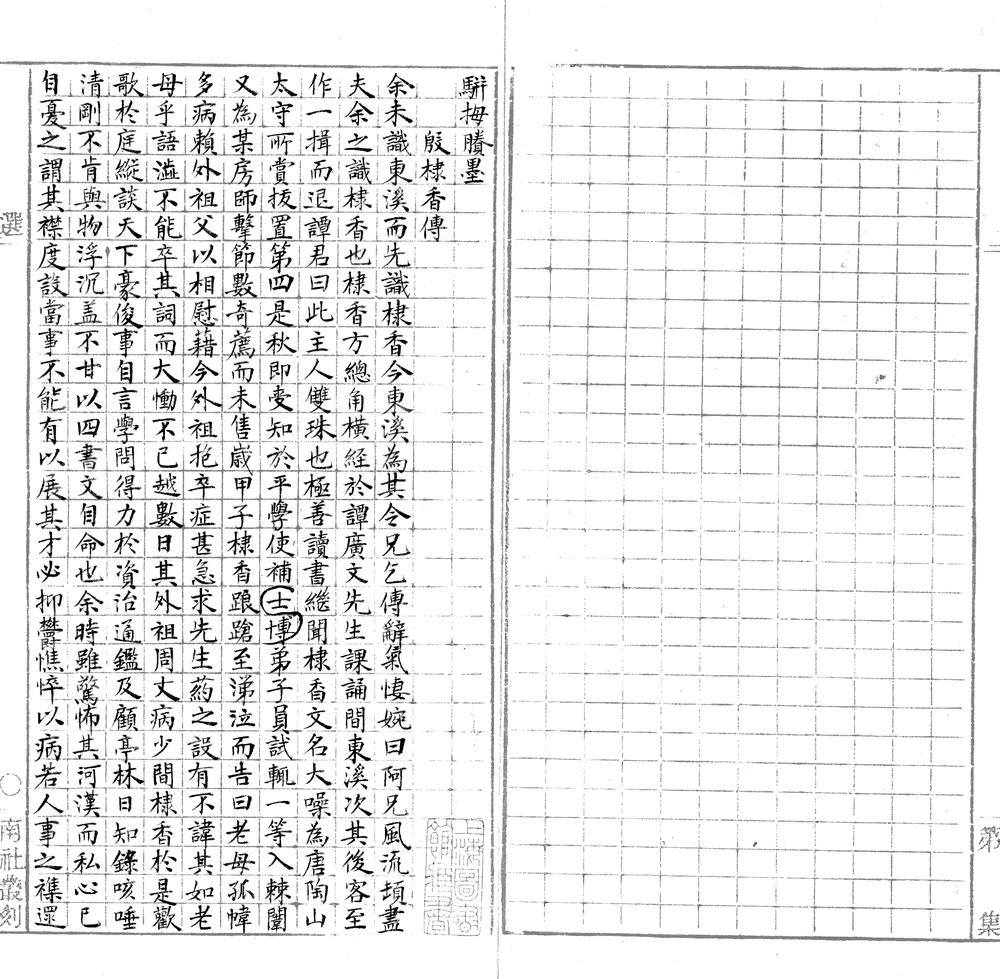 駢拇賸墨
殷棣香傳
余未識東溪而先識棣香今東溪為其令兄乞傳辭氣悽婉曰阿兄風流頓盡
夫余之識棣香也棣香方總角橫經於譚廣文先生課誦間東溪次其後客至
作一揖而退譚君曰此主人雙珠也極善讀書繼聞棣香文名大噪為唐陶山
太守所賞拔置第四是秋即受知於平學使補士博弟子員試輒一等入棘闈
又為某房師擊節數奇薦而未售歲甲子棣香踉蹌至涕泣而告曰老母孤幃
多病賴外祖父以相慰藉今外祖抱卒症甚急求先生葯之設有不諱其如老
母乎語澁不能卒其詞而大慟不已越數日其外祖周丈病少間棣香於是歡
歌於庭縱談天下豪俊事自言學問得力於資治通鑑及顧亭林日知錄咳唾
清剛不肯與物浮沉盖不甘以四書文自命也余時雖驚怖其河漢而私心已
自憂之謂其襟度設當事不能有以展其才必抑鬱憔悴以病若人事之襍還
選
○
南社叢刻
第
集